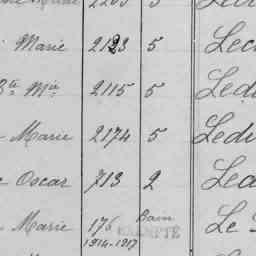 Marie 2123 5 Lec
Bte Mie 2115 5 Led
Marie 2174 5 Ledu
Oscar 713 2 Lea
Marie 176 Bain Le
1914-1917 EXEMPTÉ